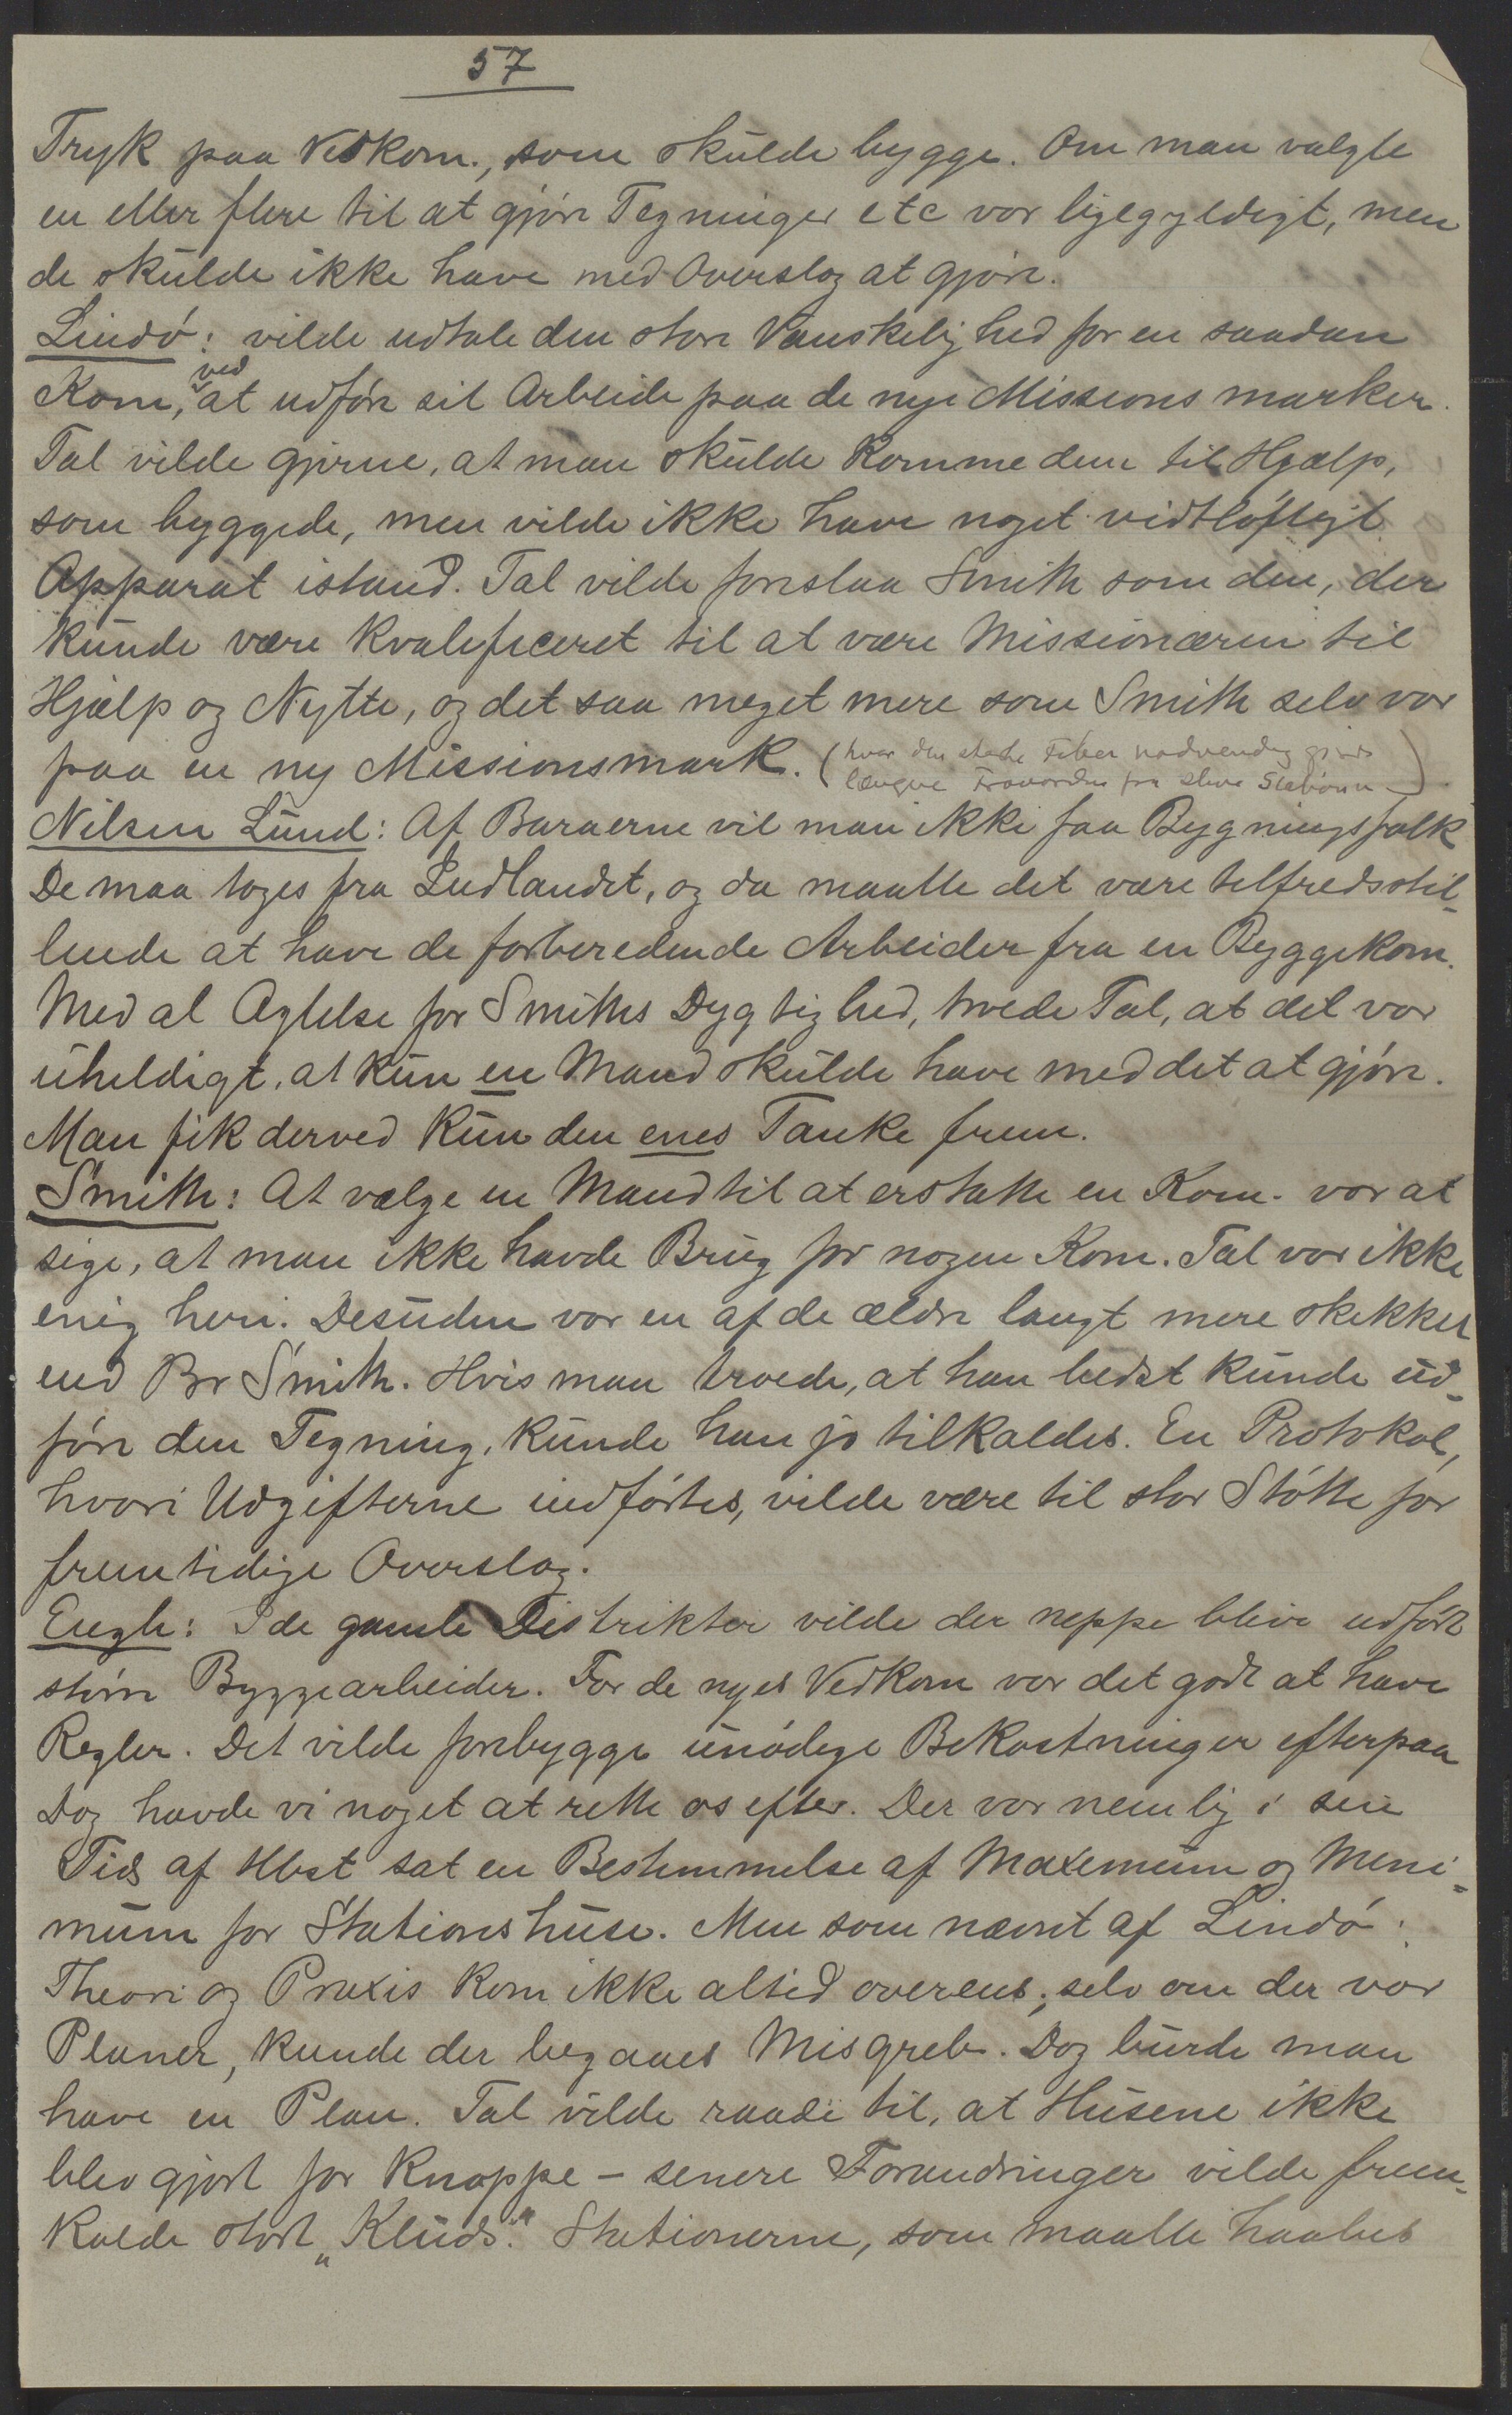 57
Tryk paa Vedkom., som skulde bygge. Om man valgte
en eller flere til at gjøre Tegninger etc var ligegyldigt, men
de skulde ikke have med Overslag at gjøre.
Lindø: vilde udtale den store Vanskelighed for en saadan
Kom, ved at udføre sit Arbeide paa de nye Missionsmarker.
Tal vilde gjerne, at man skulde komme dem til Hjælp,
som byggede, men vilde ikke have noget vidtløftigt
Apparat istand. Tal vilde foreslaa Smith som den, der
kunde være kvalificeret til at være Missionæren til
Hjælp og Nytte, og det saa meget mere som Smith selv var
paa en ny Missionsmark. (hvor den sterke Feber nødvendig gjør
længre Fravær fra Stationen)
Nilsen Lund: Af Baraerne vil man ikke faa Bygningsfolk
De maa tages fra Indlandet, og da maatte det være tilfredsstil-
lende at have de forberedende Arbeider fra en Byggekom.
Med al Agtelse for Smiths Dygtighed, troede Tal, at det var
uheldigt, at kun en Mand skulde have med det at gjøre.
Man fik derved kun den enes Tanke frem.
Smith: At vælge en Mand til at erstatte en Kom. var at
sige, at man ikke havde Brug for nogen Kom. Tal var ikke
enig heri. Desuden var en af de ældre langt mere skikket
end Br Smith. Hvis man troede, at han bedst kunde ud-
føre den Tegning, kunde han jo tilkaldes. En Protokol,
hvori Udgifterne indførtes, vilde være til stor Støtte for
fremtidige Overslag.
Engh: I de gamle Distrikter vilde der neppe blive udført
større Byggearbeider. For de nyes Vedkom var det godt at have
Regler. Det vilde forebygge unødige Bekostninger efterpaa
Dog havde vi noget at rette os efter. Der var nemlig i sin
Tid af Hbst sat en Bestemmelse af Maximum og Mini-
mum for Stationshuse. Men som nævnt af Lindø:
Theori og Praxis kom ikke altid overens; selv om der var
Planer, kunde der begaaes Misgreb. Dog burde man
have en Plan. Tal vilde raade til, at Husene ikke
blev gjort for knappe – senere Forandringer vilde frem-
kalde stort „Kluds". Stationerne, som maatte haabes